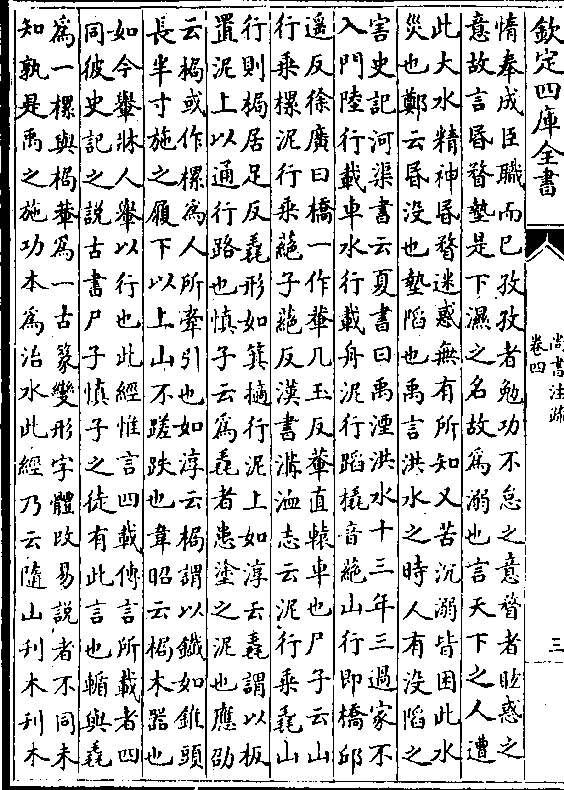 欽定四庫全書
尚書注疏
卷四
三
情奉成臣職而已孜孜者勉功不怠之意瞀者眩惑之
意故言昏瞀墊是下濕之名故為溺也言天下之人遭
此大水精神昏瞀迷惑無有所知又苦沉溺皆困此水
災也鄭云昏沒也墊陷也禹言洪水之時人有沒陷之
害史記河渠書云夏書曰禹湮洪水十三年三過家不
入門陸行載車水行載舟泥行蹈橇音蕝山行即橋邱
遙反徐廣曰橋一作輂几玉反輂直轅車也尸子云山
行乘樏泥行乘蕝子蕝反漢書溝洫志云泥行乘毳山
行則梮居足反毳形如箕擿行泥上如淳云毳謂以板
置泥上以通行路也慎子云為毳者患塗之泥也應劭
云梮或作樏為人所牽引也如淳云梮謂以鐵如錐頭
長半寸施之履下以上山不蹉跌也韋昭云梮木器也
如今轝牀人轝以行也此經惟言四載傳言所載者四
同彼史記之說古書尸子慎子之徒有此言也輴與毳
為一樏與梮輂為一古篆變形字體改易說者不同未
知孰是禹之施功本為治水此經乃云隨山刋木刋木